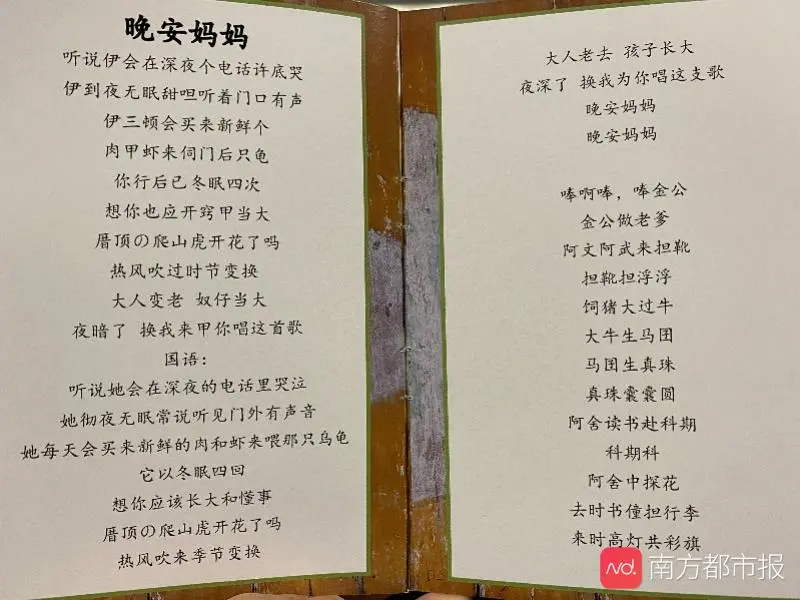 晚安妈妈
听说伊会在深夜个电话许底哭
伊到夜无眠甜呾听着门口有声
伊三顿会买来新鲜个
肉甲虾来伺门后只龟
你行后已冬眠四次
想你也应开窍甲当大
厝顶の爬山虎开花了吗
热风吹过时节变换
大人变老 奴仔当大
夜暗了 换我来甲你唱这首歌
国语：
听说她会在深夜的电话里哭泣
她彻夜无眠常说听见门外有声音
她每天会买来新鲜的肉和虾来喂那只乌龟
它以冬眠四回
想你应该长大和懂事
厝顶の爬山虎开花了吗
热风吹来季节变换
大人老去 孩子长大
夜深了 换我为你唱这支歌
晚安妈妈
晚安妈妈
唪啊唪，唪金公
金公做老爹
阿文阿武来担靴
担靴担浮浮
饲猪大过牛
大牛生马团
马团生真珠
真珠囊囊圆
阿舍读书赴科期
科期科
阿舍中探花
去时书僮担行李
来时高灯共彩旗
Nd. 南方都市报